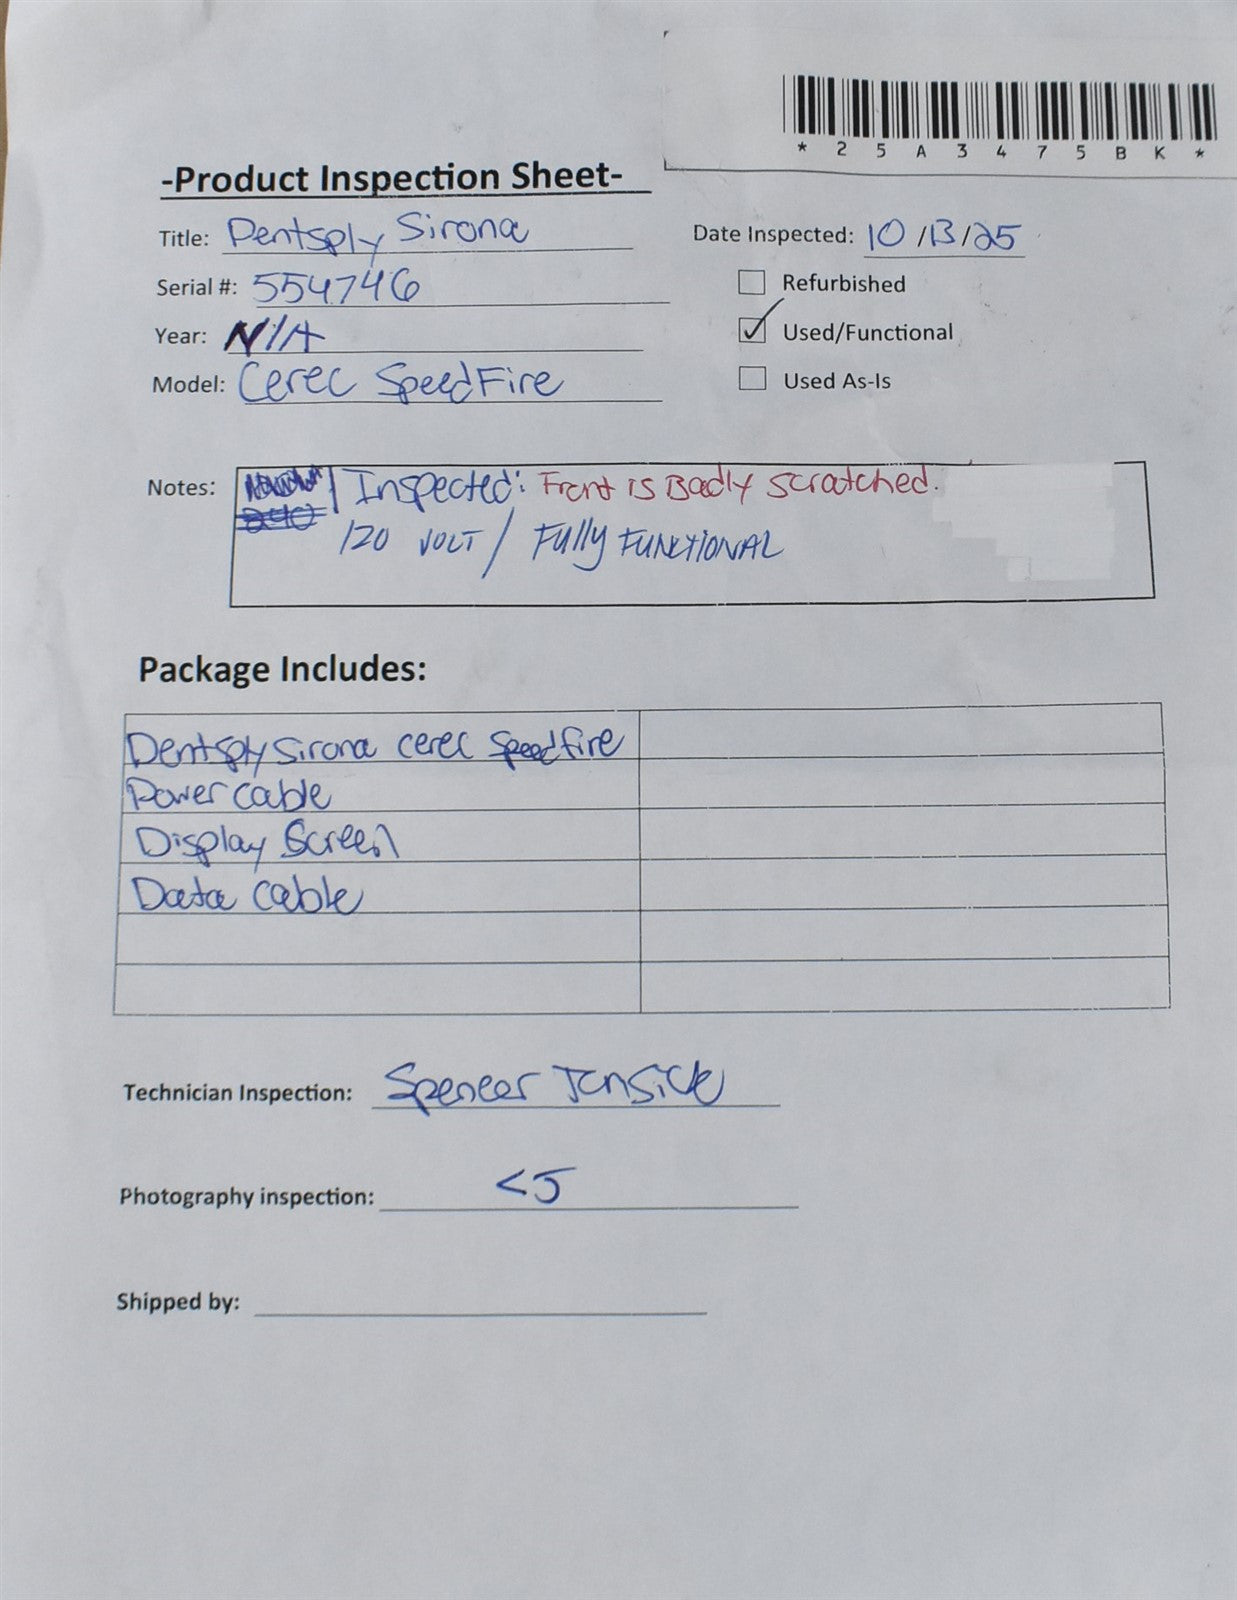 *25A3475BK*
-Product Inspection Sheet-
Title: Dentsply Sirona
Date Inspected: 10/13/25
Serial #: 554746
Refurbished
Year: N/A
Used/Functional
Model: Cerec SpeedFire
Used As-Is
Notes: Inspected: Front is Badly scratched.
240
120 VOLT / Fully FUNCTIONAL
Package Includes:
Dentsply Sirona cerec Speedfire
Power cable
Display Screen
Data cable
Technician Inspection: Spencer
Photography inspection:
Shipped by: